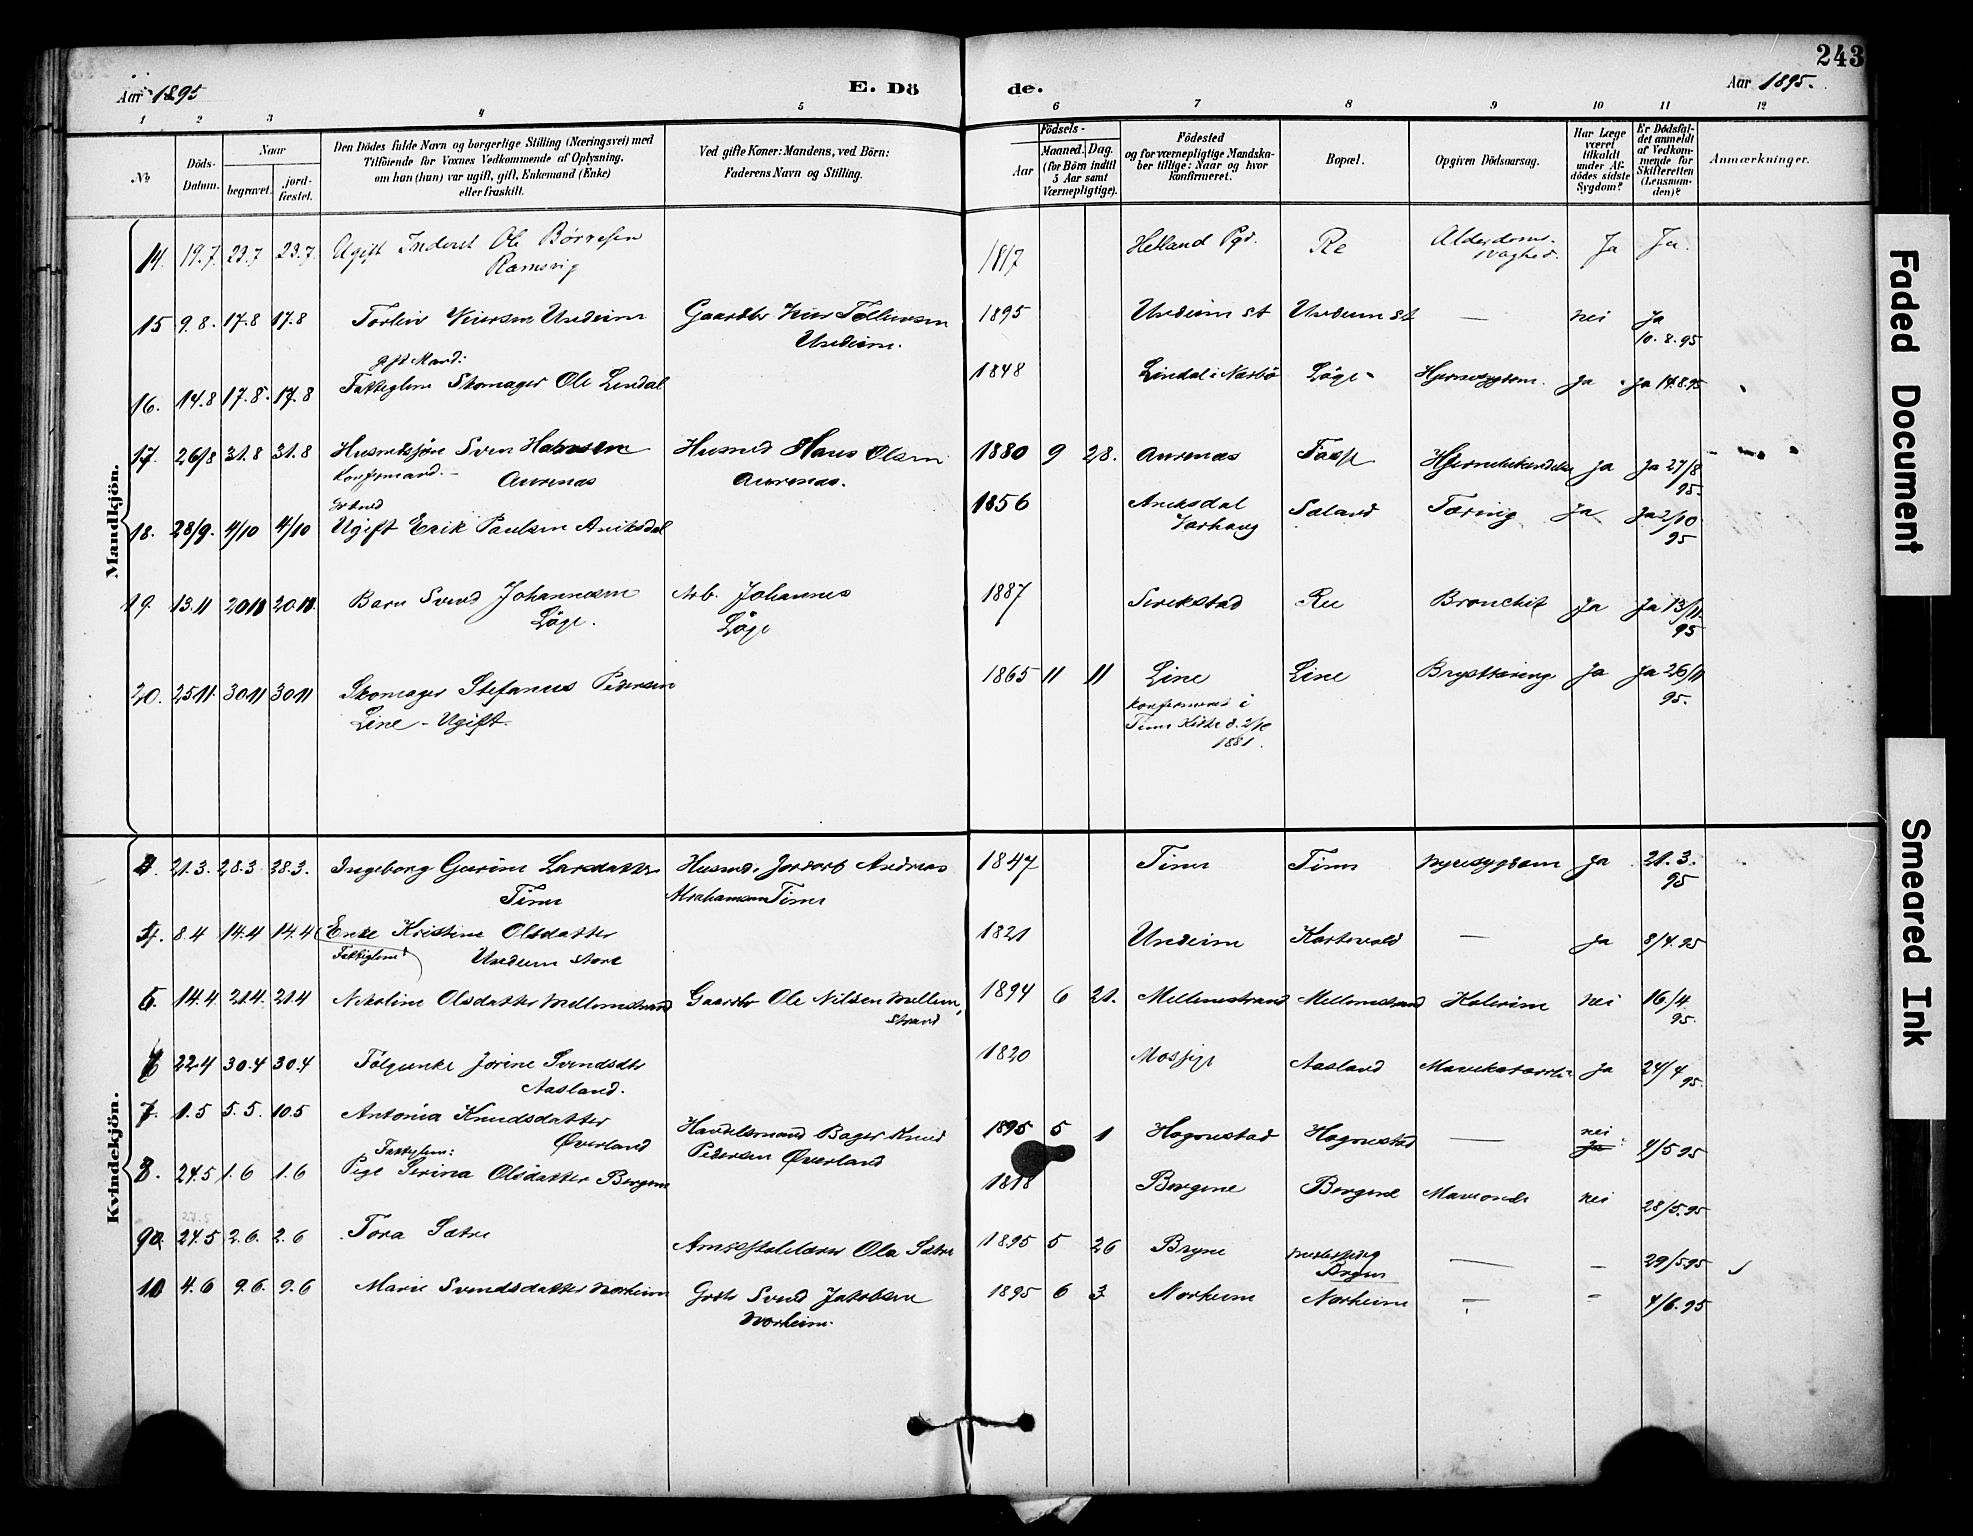 243
Aar 1895
E. Dö
de.
Aar 1895.
1 2 3 4 5 6 7 8 9 10 11 12
№
Döds-Datum.
Naar
begravet.
jord-fæstet.
Den Dödes fulde Navn og borgerlige Stilling (Næringsvei) med
Tilföiende for Voxnes Vedkommende af Oplysning,
om han (hun) var ugift, gift, Enkemand (Enke)
eller fraskilt.
Ved gifte Koner: Mandens, ved Börn:
Faderens Navn og Stilling.
Födsels-
Aar
Maaned. Dag.
(for Börn indtil
5 Aar samt
Værnepligtige).
Födested
og for værnepligtige Mandska-
ber tillige: Naar og hvor
konfirmeret.
Bopæl.
Opgiven Dödsaarsag.
Har Læge
været
tilkaldt
under Af-
dödes sidste
Sygdom?
Er Dödsfal-
det anmeldt
af Vedkom-
mende for
Skifteretten
(Lensman-
den)?
Anmærkninger.
Mandkjön.
14. 19.7. 23.7 23.7 Ugift Inderst Ole Börresen 1817 Hetland Pgd. Re Alderdoms- Ja Ja.
Ramsvig svaghed.
15 9.8. 17.8 17.8 Undeim Gaardbr 1895 Undeim st Undeim st — nei Ja
Undeim. 10.8.95
gift Mand:
16. 14.8 17.8. 17.8 Fattiglem Skomager Ole Lindal 1848 Lindal i Nærbö Löge Hjernesygdom. Ja Ja 14.8.95
17. 26/8 31.8 31.8 Husmdsjön Sven Hansen Husmd Hans Olsen 1880 9 28. Aurenæs Fosse Ja Ja 27/8
Konfirmand. — Aurenæs Aurenæs. 95.
18. 28/9. 4/10 4/10 Ugift Erik Paulsen Aniksdal 1856 Aniksdal Sæland Tæring Ja Ja 2/10
Varhaug 95
19. 13.11 20.11 20.11. Barn Svend Johannesen Arb. Johannes 1887 Serikstad Re Bronchit Ja Ja 13/11
Löge. Löge 95
20. 25.11. 30.11 30.11 Skomager Stefanus Pedersen 1865 11 11 Line Line Brysttæring Ja Ja 26/11
Line - Ugift. Konfirmeret i 95.
Time Kirke d. 2/10
1881.
Kvindekjön.
3. 21.3. 28.3 28.3. Ingeborg Gurine Larsdatter Husmd. Andreas 1847 Time Time Nyresygdom Ja 21.3.
Time Abrahamsen Time 95
4. 8.4 14.4 14.4 Enke Kristine Olsdatter 1821 Undeim Kartevold — Ja 8/4.95
Fattiglem Undeim store
5. 14.4 21.4. 21.4 Nikoline Olsdatter Mellemstrand Gaardbr Ole Nilsen Mellem- 1894 6 21. Mellemstrand Mellemstrand Kolerine nei 16/4.
strand 95.
6 22.4 30.4 30.4 Følgeenke Jorine Svendsdtr 1820 Mossige Aasland Mavekatarrh Ja 24/4
Aasland. 95.
7. 1.5 5.5. 10.5 Antonia Knudsdatter Handelsmand Bager Knud 1895 5 1 Hognestad Hognestad — nei 4/5 95
Øverland Pedersen Øverland Ja
Fattiglem:
8. 24.5 1.6 1.6 Pige Serina Olsdatter Bergene 1818 Bergene Bergene Maveonde nei 28/5.95
27.5
9 24.5 2.6. 2.6 Tora Sætre Ole Sætre 1895 5 26 Bryne Bryne — — 29/5 95
10 4.6 9.6. 9.6 Marie Svendsdatter Norheim Grbr Svend Jakobsen 1895 6 3 Norheim Norheim — — 4/6.95
Norheim.
Faded Document
Smeared Ink